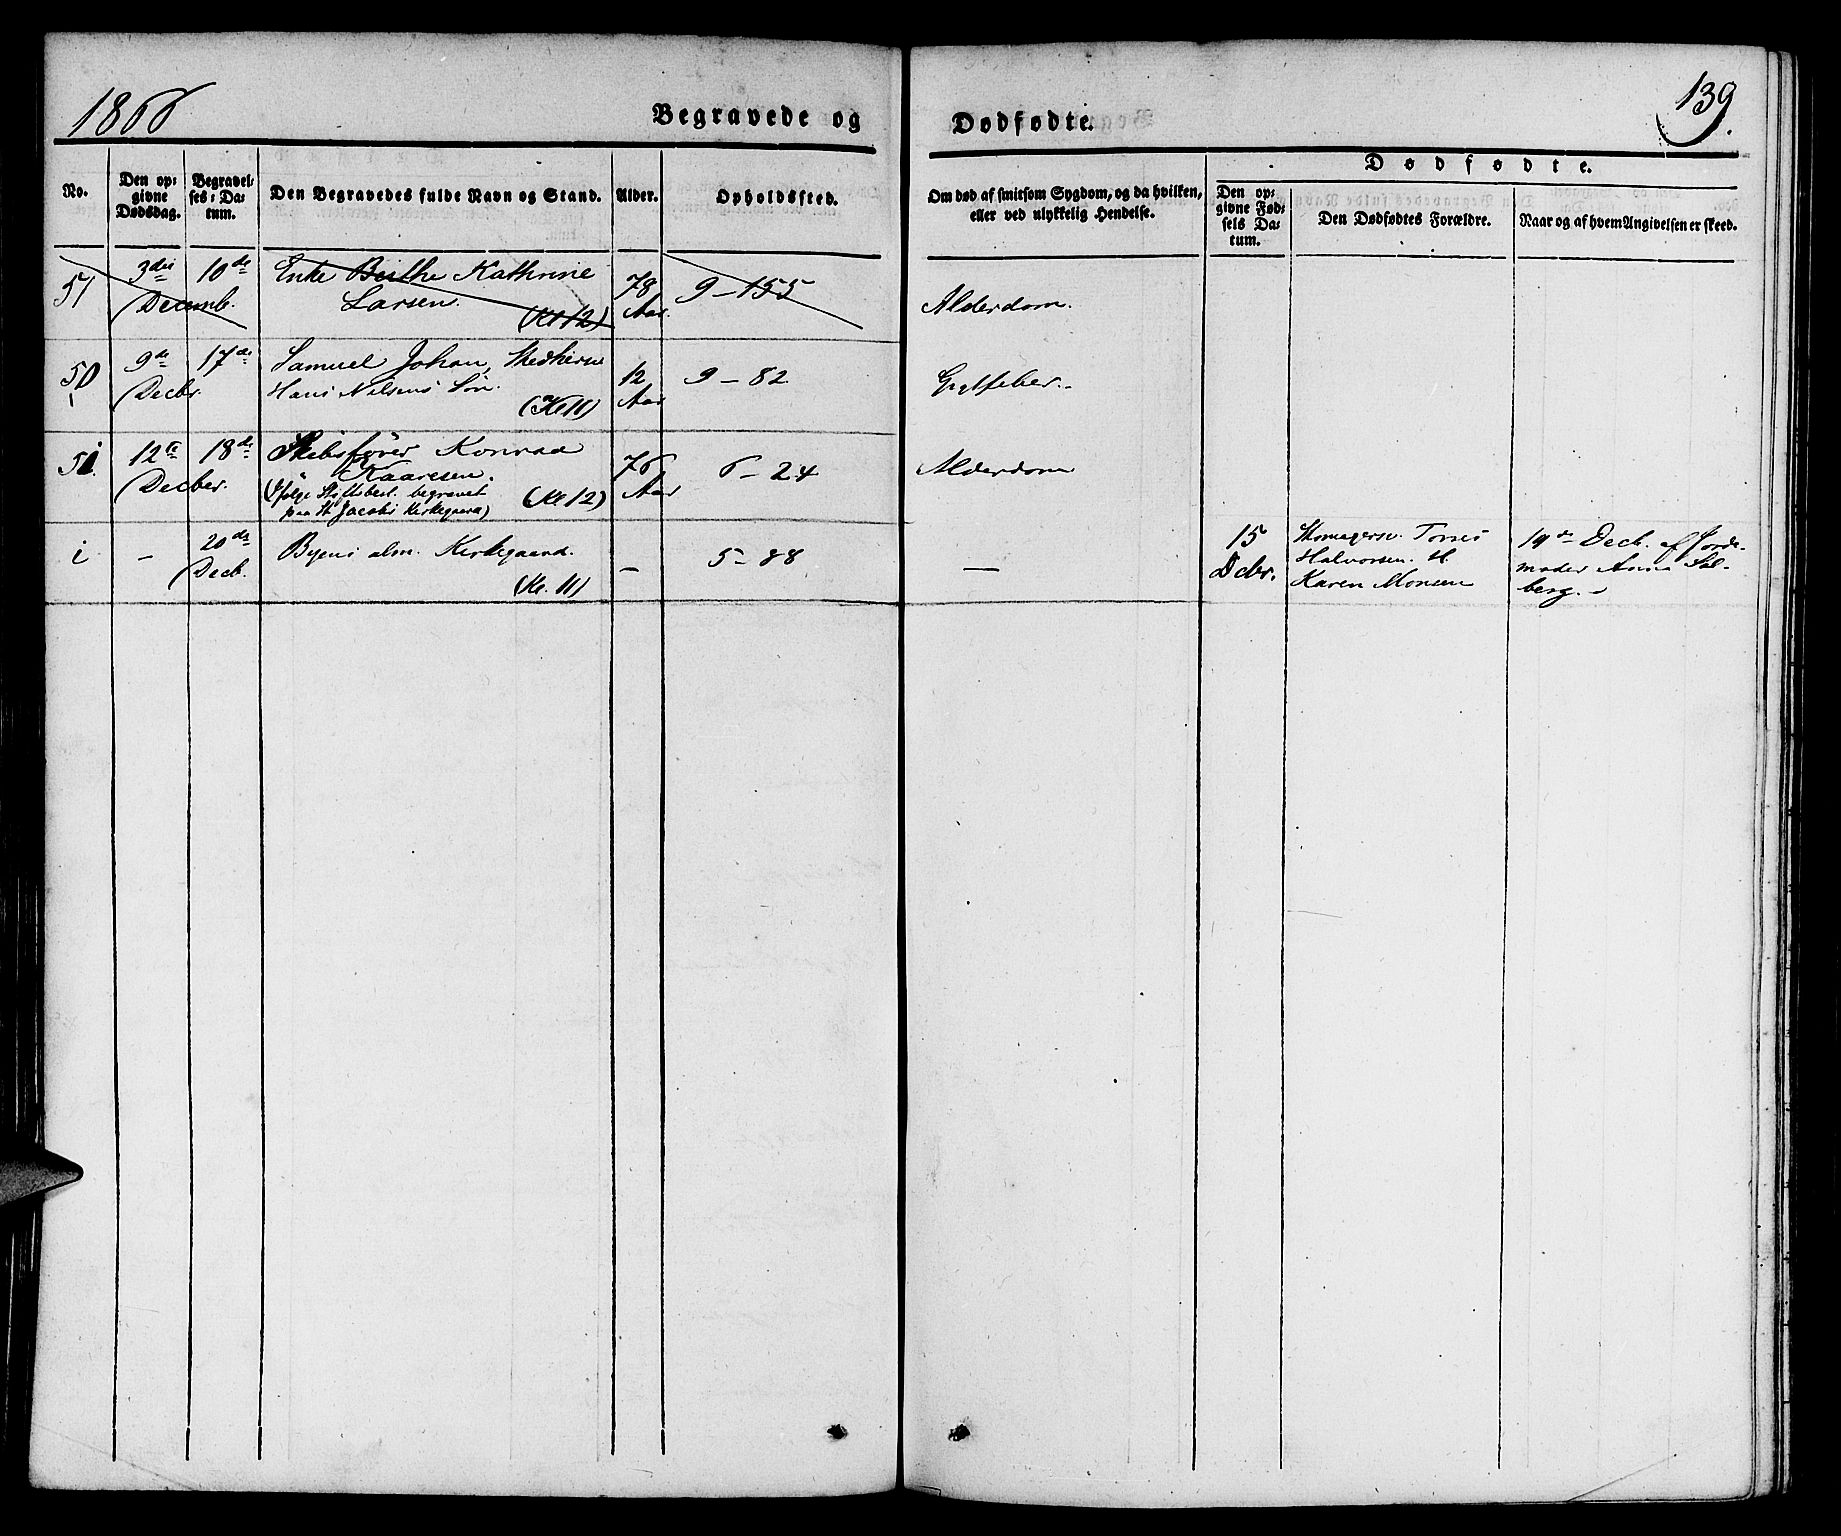 1866
Begravede og
Dødfødte.
139.
No.
Den opgivne Dødsdag.
Begravelses-Datum.
Den Begravedes fulde Navn og Stand.
Alder.
Opholdssted.
Om død af smitsom Sygdom, og da hvilken,
eller ved ulykkelig Hendelse.
Dødfødte.
Den opgivne Fødsels Datum.
Den Dødfødtes Forældre.
Naar og af hvem Angivelsen er skeed.
51 3die 10de Enke Birthe Kathrine 78 9–155 Alderdom.
Decemb. Larsen. Aar
(Kl 12)
50 9de 17de Samuel Johan, 12 9–82 Gigtfeber.
Decbr. Hans Nilsens Søn Aar
(Kl 11)
51. 12te 18de Skibsfører Konrad 76 6–24 Alderdom
Decber. Kaaresen. Aar
(ifølge Stiftsbest. begravet (Kl 12)
paa St Jacobs Kirkegaard)
1 – 20de Byens alm. Kirkegaard. – 5–88 – 15 Tønnes 19de Decb. af Jorde-
Decb. Dcbr. Halvorsen. H. moder Anna Sol-
(Kl. 11) Karen Monsen berg.